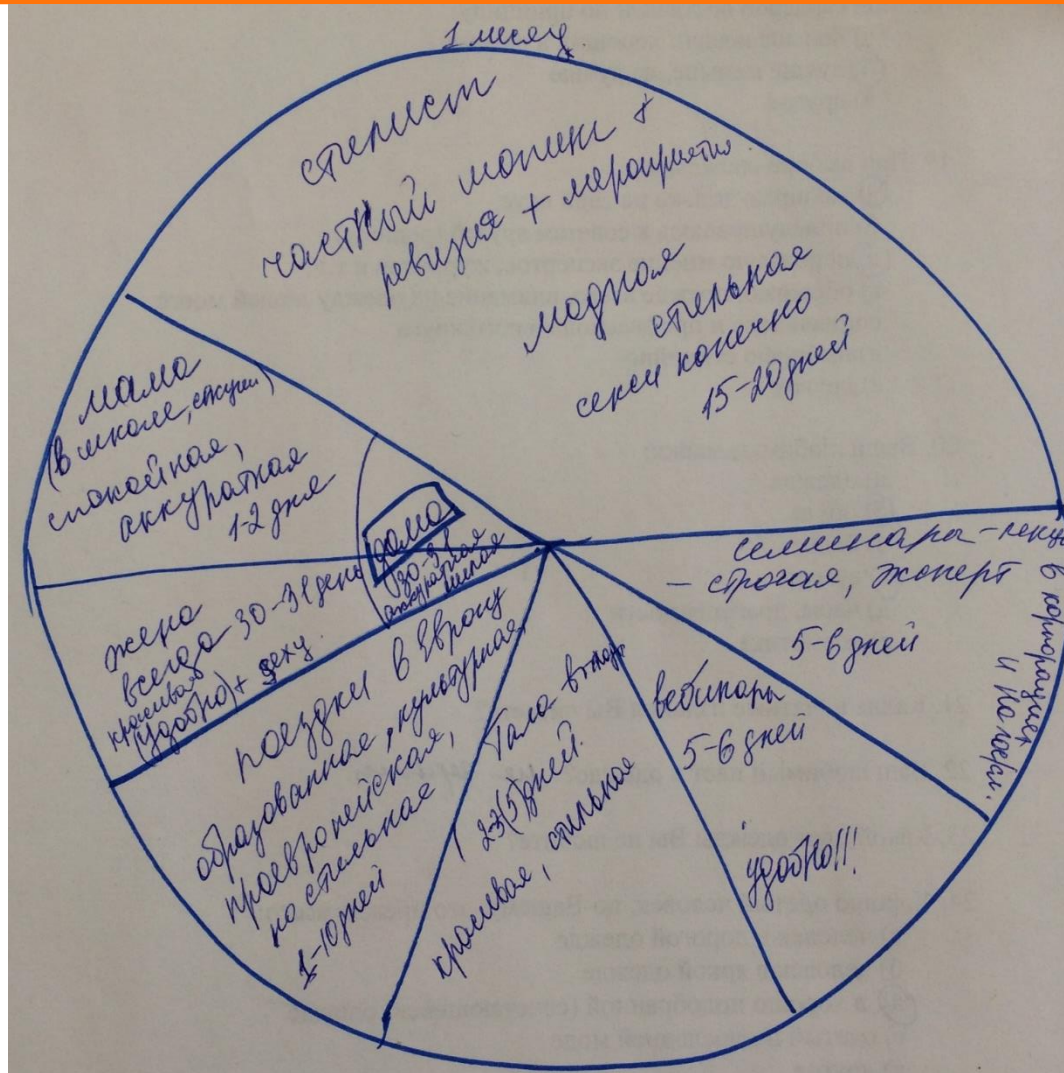 1 месяц
стилист
частный шопинг +
ревизия + мероприятия
модная
стильная
секси конечно
15-20 дней
мама
(в школе, секции)
спокойная,
аккуратная
1-2 дня
дома
30-31
аккуратная
милая
жена
всегда - 30-31 день
красивая
(удобно) + секу
поездки в Европу
образованная, культурная,
проевропейская,
но стильная
1-10 дней
Гала-
2-3(5) дней
красивая, стильная
вебинары
5-6 дней
удобно!!!
семинары -
- строгая, эксперт
5-6 дней
в корпорациях
и